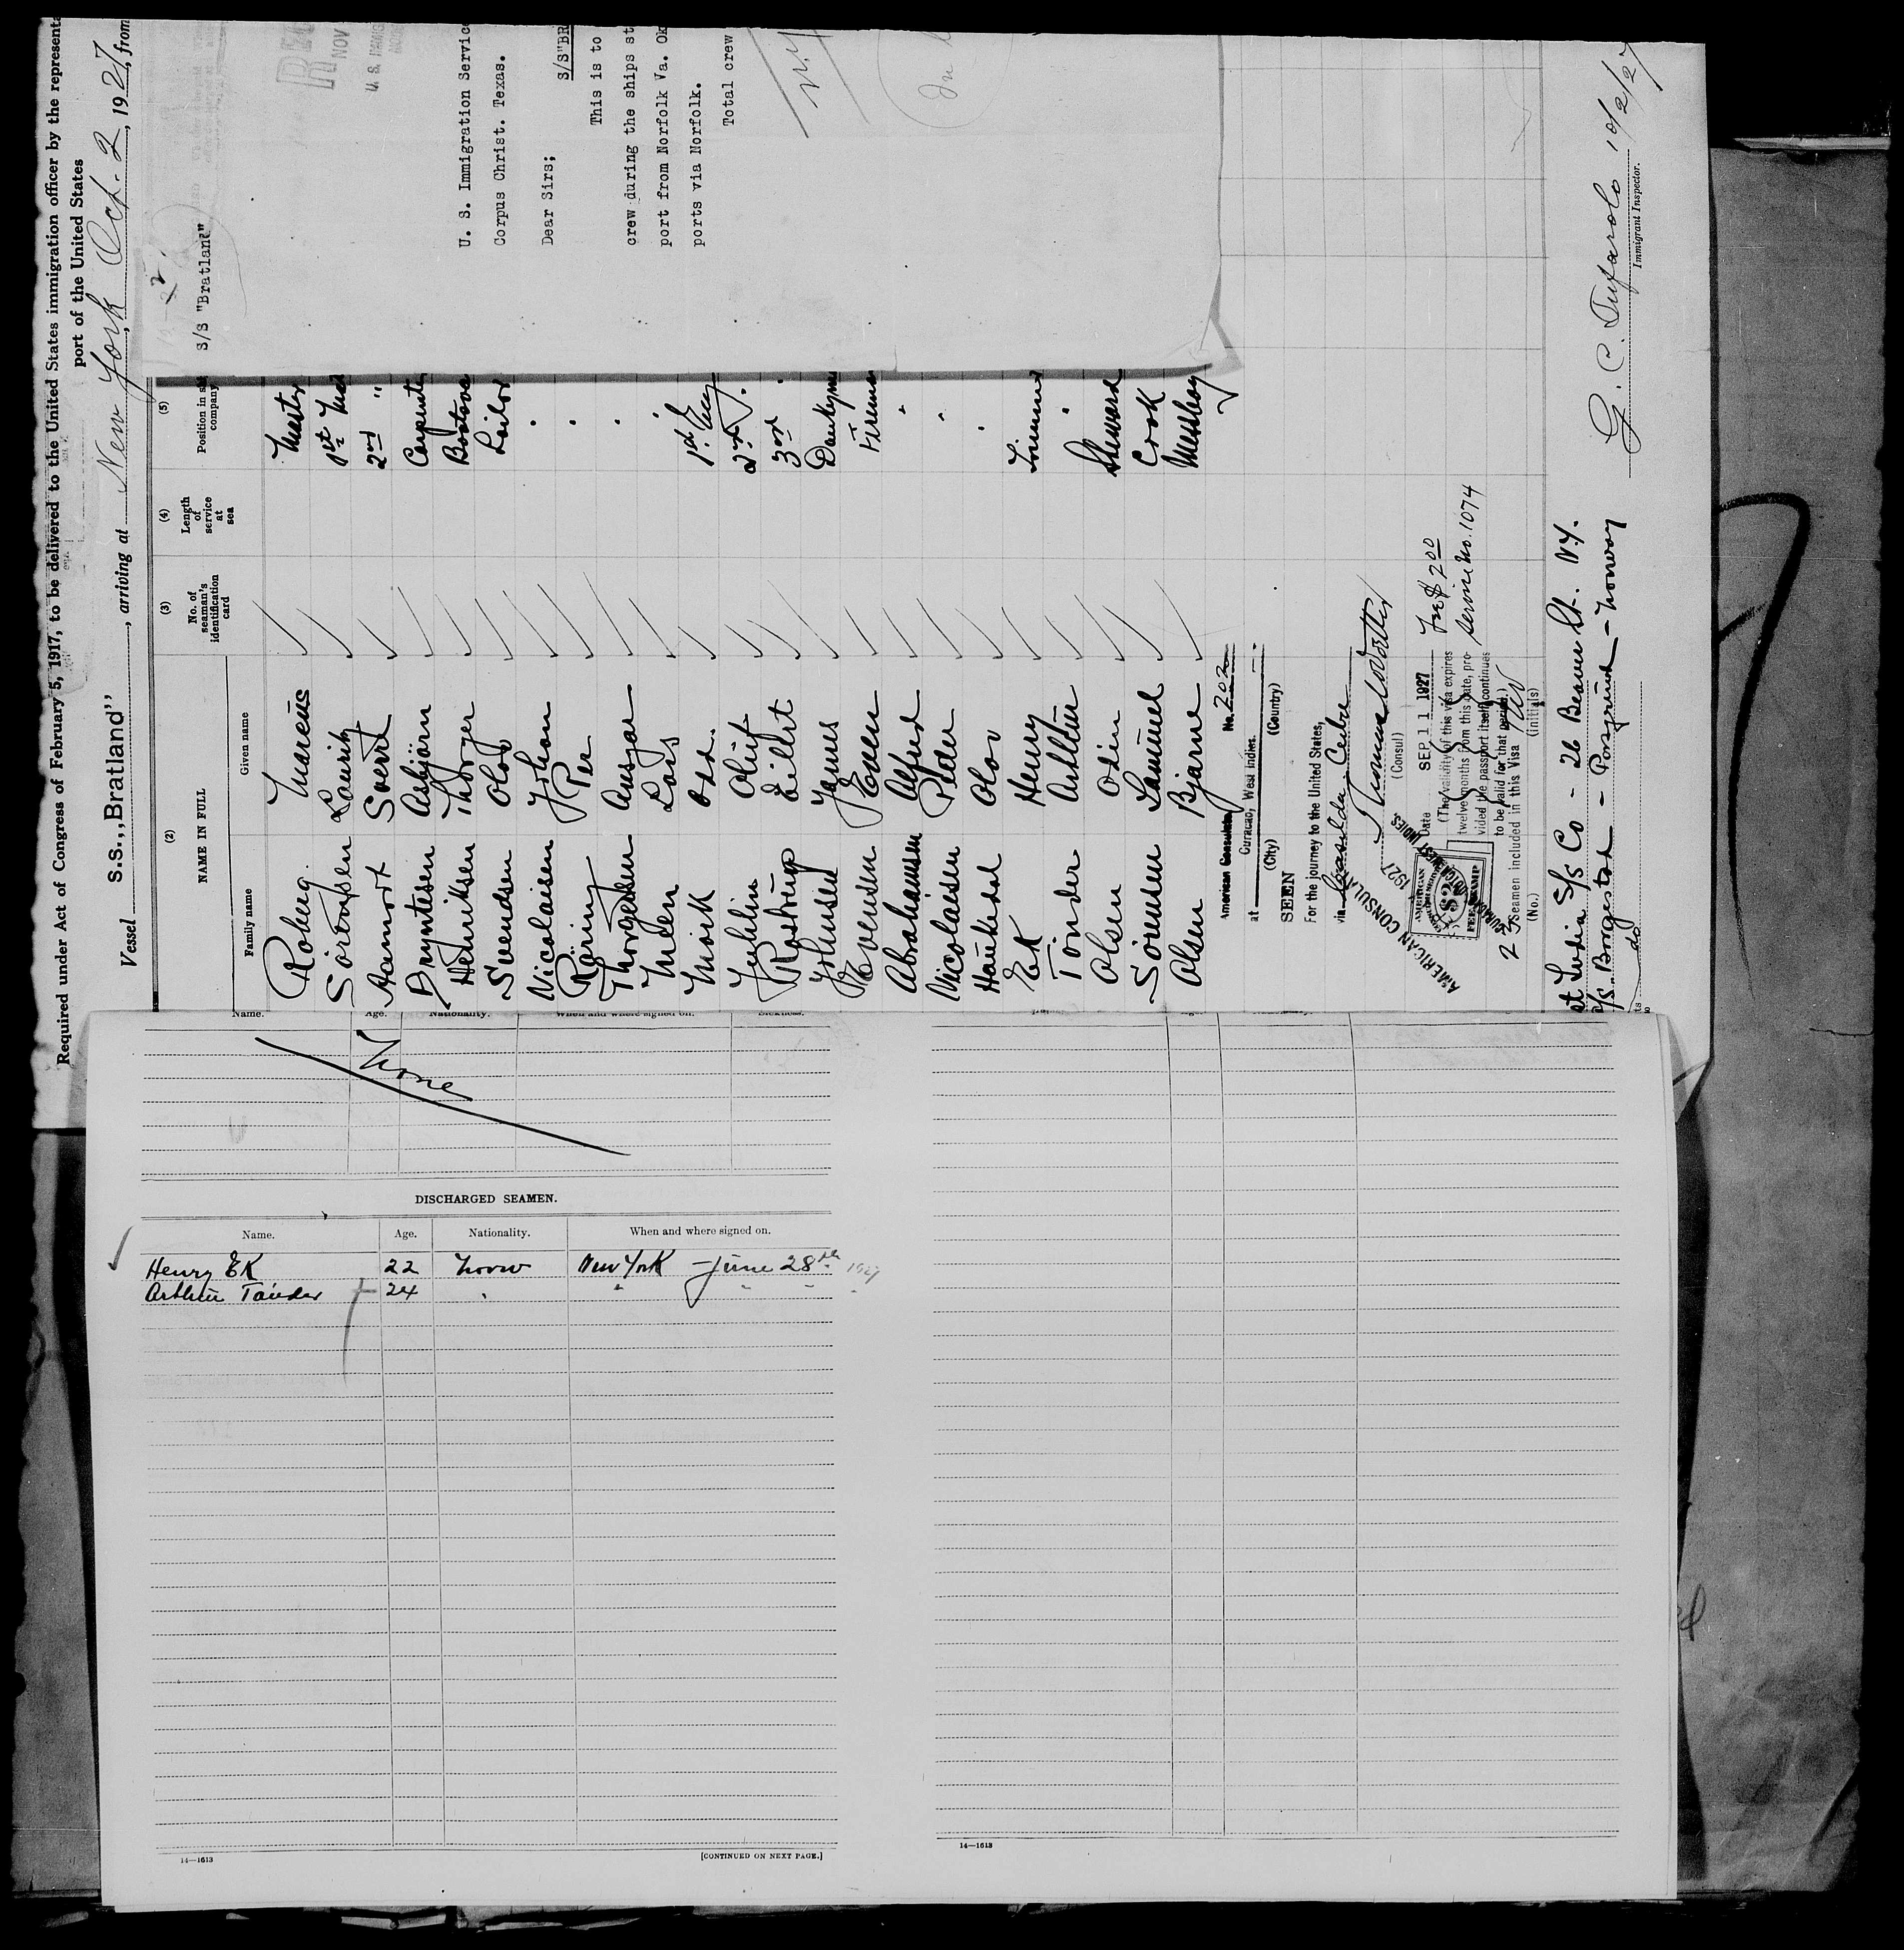 Required under Act of Congress of February 5, 1917, to be delivered to the United States immigration officer by the represent
port of the United States
Vessel S.S. ,,Bratland", arriving at New York Oct. 2, 1927, from
(2) (3) (4) (5)
NAME IN FULL
Family name Given name
No. of seaman's identification card
Length of service at sea
Position in company
Roberg Marcus Master
Sörensen Laurits 1st
Aamodt Sverre 2nd "
Bryntesen Asbjörn
Henriksen Thorger
Svendsen Olav Sailor
Nicolaisen Johan "
Räring Per "
Ansgar "
Lars "
Mörk Odd
Juhlin Oluf 2nd
Rostrup Eilert 3rd
Johnsen
Evensen Even
Abrahamsen Alfred "
Nicolaisen Peder "
Haukedal Olav "
Ek Henry
Tönder Arthur "
Olsen Odin Steward
Sörensen Samuel Cook
Olsen Bjarne Messboy
American Consulate No. 202
at Curacao, West Indies.
(City) (Country)
SEEN
For the journey to the United States,
via Casilda, Cuba
(Consul)
Date SEP 11 1927
Fee $ 2 00
Service No. 1074
(The validity of this visa expires
twelve months from this date, pro-
vided the passport itself continues
to be valid for that period.)
23 Seamen included in this Visa
(No.) (initials)
AMERICAN CONSULA
1927
AMERICAN
$2
FEE STAMP
st India S/S Co - 26 Beaver St. N.Y.
S/S. Borgestad - Porsgrund - Norway
do
G. C. Tufarolo 10/2/27
Immigrant Inspector.
S/S "Bratland"
NOV
U. S. IMMIG
U. S. Immigration Servic
Corpus Christ. Texas.
S/S"BR
Dear Sirs;
This is to
crew during the ships st
port from Norfolk Va. Ok
ports via Norfolk.
Total crew
Name. Age. Nationality. When and where signed on. Sickness.
None
DISCHARGED SEAMEN.
Name. Age. Nationality. When and where signed on.
Henry Ek 22 Norw New York - June 28th 1927
Arthur Tönder 24 " " " "
14—1613
[CONTINUED ON NEXT PAGE.]
14—1613